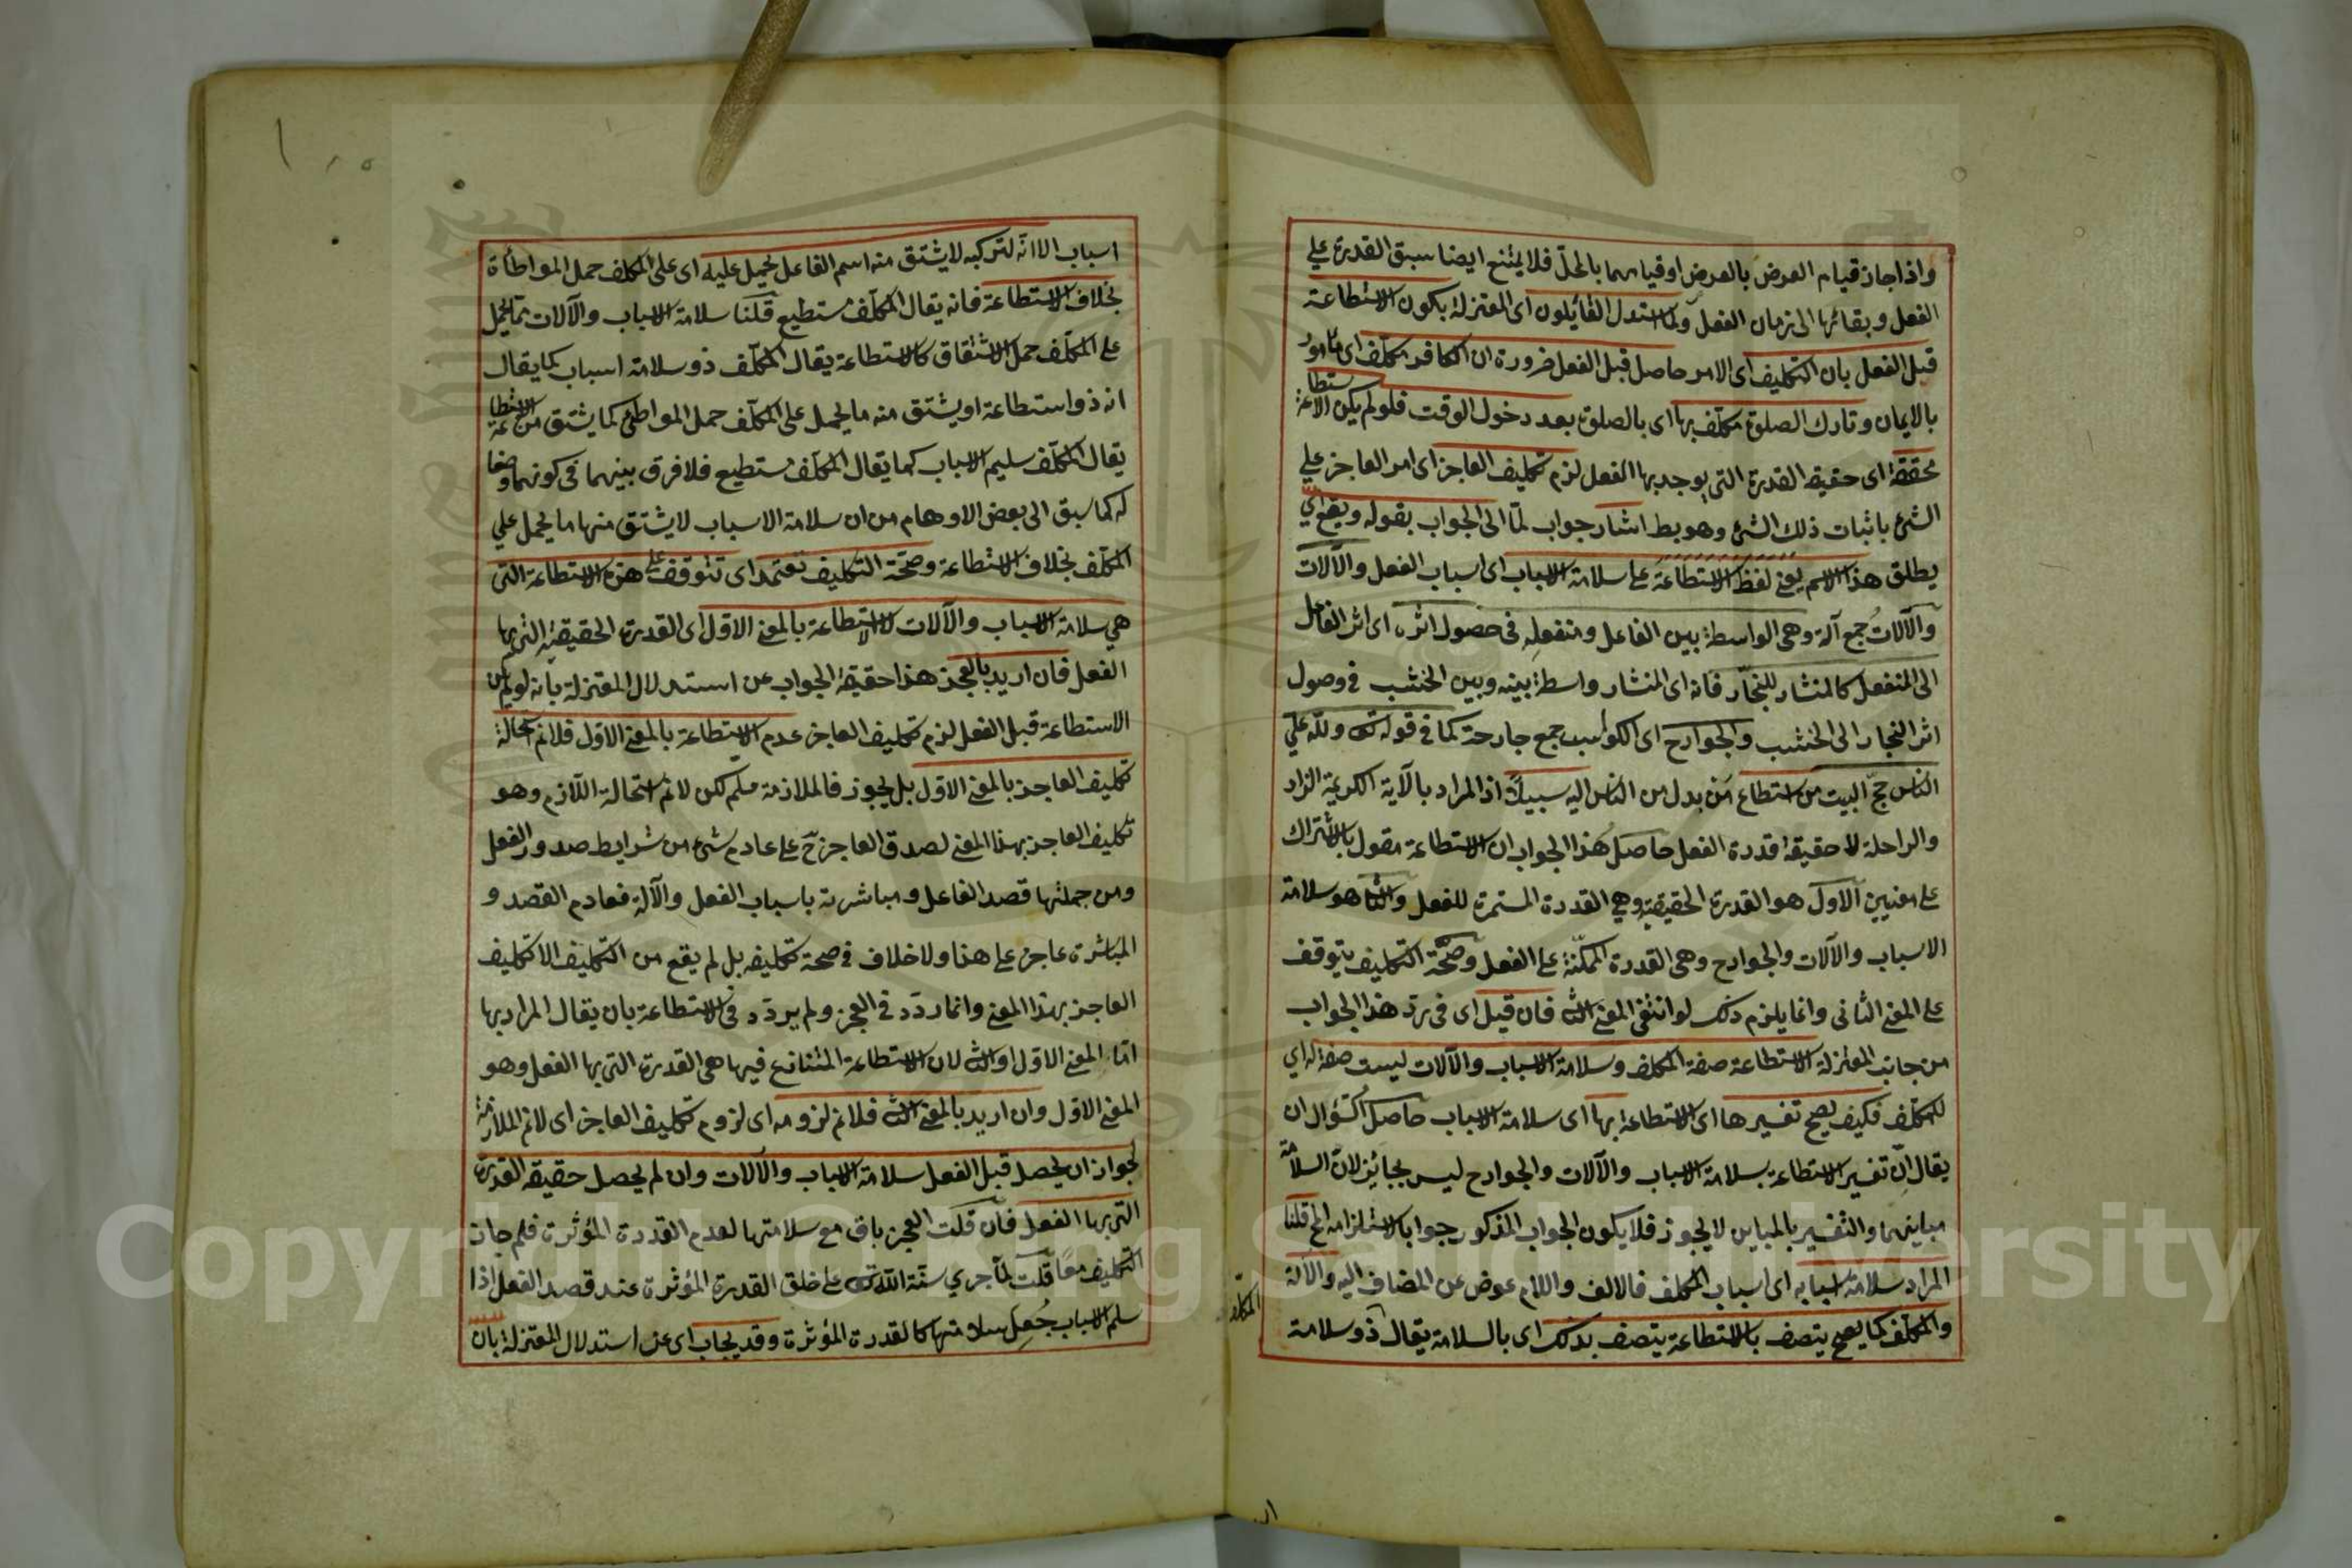 واذا جاز قيام العرض بالعرض او قيامهما بالمحل فلا يمتنع ايضا سبق القدرة على
الفعل وبقائها الى زمان الفعل ولما استدل القائلون اى المعتزلة بكون الاستطاعة
قبل الفعل بان التكليف اى الامر حاصل قبل الفعل ضرورة ان الكافر مكلف اى مأمور
بالايمان وتارك الصلوة مكلف بها اى بالصلوة بعد دخول الوقت فلو لم يكن الاستطاعة
محققة اى حقيقة القدرة التى يوجد بها الفعل لزم تكليف العاجز اى امر العاجز على
الشئ باثبات ذلك الشئ وهو بط اشار جواب لمّا الى الجواب بقوله ويقع اى
يطلق هذا الاسم يعنى لفظ الاستطاعة على سلامة الاسباب اى اسباب الفعل والآلات
والآلات جمع آلة وهى الواسطة بين الفاعل ومنفعله فى حصول اثره اى اثر الفاعل
الى المنفعل كالمنشار للنجّار فانه اى المنشار واسطة بينه وبين الخشب فى وصول
اثر النجار الى الخشب والجوارح اى الكواسب جمع جارحة كما فى قوله تع ولله على
الناس حجّ البيت من استطاع مَن بدل من الناس اليه سبيلاً اذ المراد بالآية الكريمة الزاد
والراحلة لا حقيقة قدرة الفعل حاصل هذا الجواب ان الاستطاعة مقول بالاشتراك
على معنيين الاول هو القدرة الحقيقية وهي القدرة المستمرة للفعل والثا هو سلامة
الاسباب والآلات والجوارح وهى القدرة الممكّنة على الفعل وصحّة التكليف يتوقف
على المعنى الثانى وانما يلزم ذلك لو انتفى المعنى الثا فان قيل اى فى رد هذا الجواب
من جانب المعتزلة الاستطاعة صفة المكلف وسلامة الاسباب والآلات ليست صفة له اي
للمكلف فكيف يصح تفسيرها اى الاستطاعة بها اى سلامة الاسباب حاصل السؤال ان
يقال انّ تفسير الاستطاعة بسلامة الاسباب والآلات والجوارح ليس بجائز لانّ السلامة
مباينهما والتفسير بالمباين لا يجوز فلا يكون الجواب المذكور جوابا لاستلزامه المح قلنا
المراد سلامة اسبابه اى اسباب المكلف فالالف واللام عوض عن المضاف اليه والآلة
والمكلف كما يصح يتصف بالاستطاعة يتصف بذلك اى بالسلامة يقال ذو سلامة
اسباب الا انّه لتركبه لا يشتق منه اسم الفاعل يحمل عليه اى على المكلف حمل المواطأة
بخلاف الاستطاعة فانه يقال المكلف مستطيع قلنا سلامة الاسباب والآلات مما يحمل
على المكلف حمل الاشتقاق كالاستطاعة يقال المكلف ذو سلامة اسباب كما يقال
انه ذو استطاعة او يشتق منه ما يحمل على المكلف حمل المواطئ كما يشتق من الاستطاعة
يقال المكلف سليم الاسباب كما يقال المكلف مستطيع فلا فرق بينهما فى كونهما وصفا
له كما سبق الى بعض الاوهام من ان سلامة الاسباب لا يشتق منها ما يحمل علي
المكلف بخلاف الاستطاعة وصحّة التكليف تعتمد اى تتوقف على هذه الاستطاعة التى
هي سلامة الاسباب والآلات لا الاستطاعة بالمعنى الاول اى القدرة الحقيقية التى بها
الفعل فان اريد بالعجز هذا حقيقة الجواب عن استدلال المعتزلة بانه لو لم يكن
الاستطاعة قبل الفعل لزم تكليف العاجز عدم الاستطاعة بالمعنى الاول فلانم استحالة
تكليف العاجز بالمعنى الاول بل يجوز فالملازمة مسلم لكن لانم استحالة اللازم وهو
تكليف العاجز بهذا المعنى لصدق العاجز ح على عادم شئ من شرايط صدور الفعل
ومن جملتها قصد الفاعل ومباشرته باسباب الفعل والآلة فعادم القصد و
المباشرة عاجز على هذا ولا خلاف فى صحة تكليفه بل لم يقع من التكليف الا تكليف
العاجز بهذا المعنى وانما ردّد فى العجز ولم يردّد فى الاستطاعة بان يقال المراد بها
امّا المعنى الاول او الثا لان الاستطاعة المتنازع فيها هى القدرة التى بها الفعل وهو
المعنى الاول وان اريد بالمعنى الثا فلانم لزومه اى لزوم تكليف العاجز اى لانم الملازمة
لجواز ان يحصل قبل الفعل سلامة الاسباب والآلات وان لم يحصل حقيقة القدرة
التى بها الفعل فان قلت العجز باق مع سلامتها لعدم القدرة المؤثرة فلم جاز
التكليف معاً قلت لمّا جرى سنّة الله تع على خلق القدرة المؤثرة عند قصد الفعل اذا
سلم الاسباب جُعل سلامتها كالقدرة المؤثرة وقد يجاب اى عن استدلال المعتزلة بان
Copyright © King Saud University